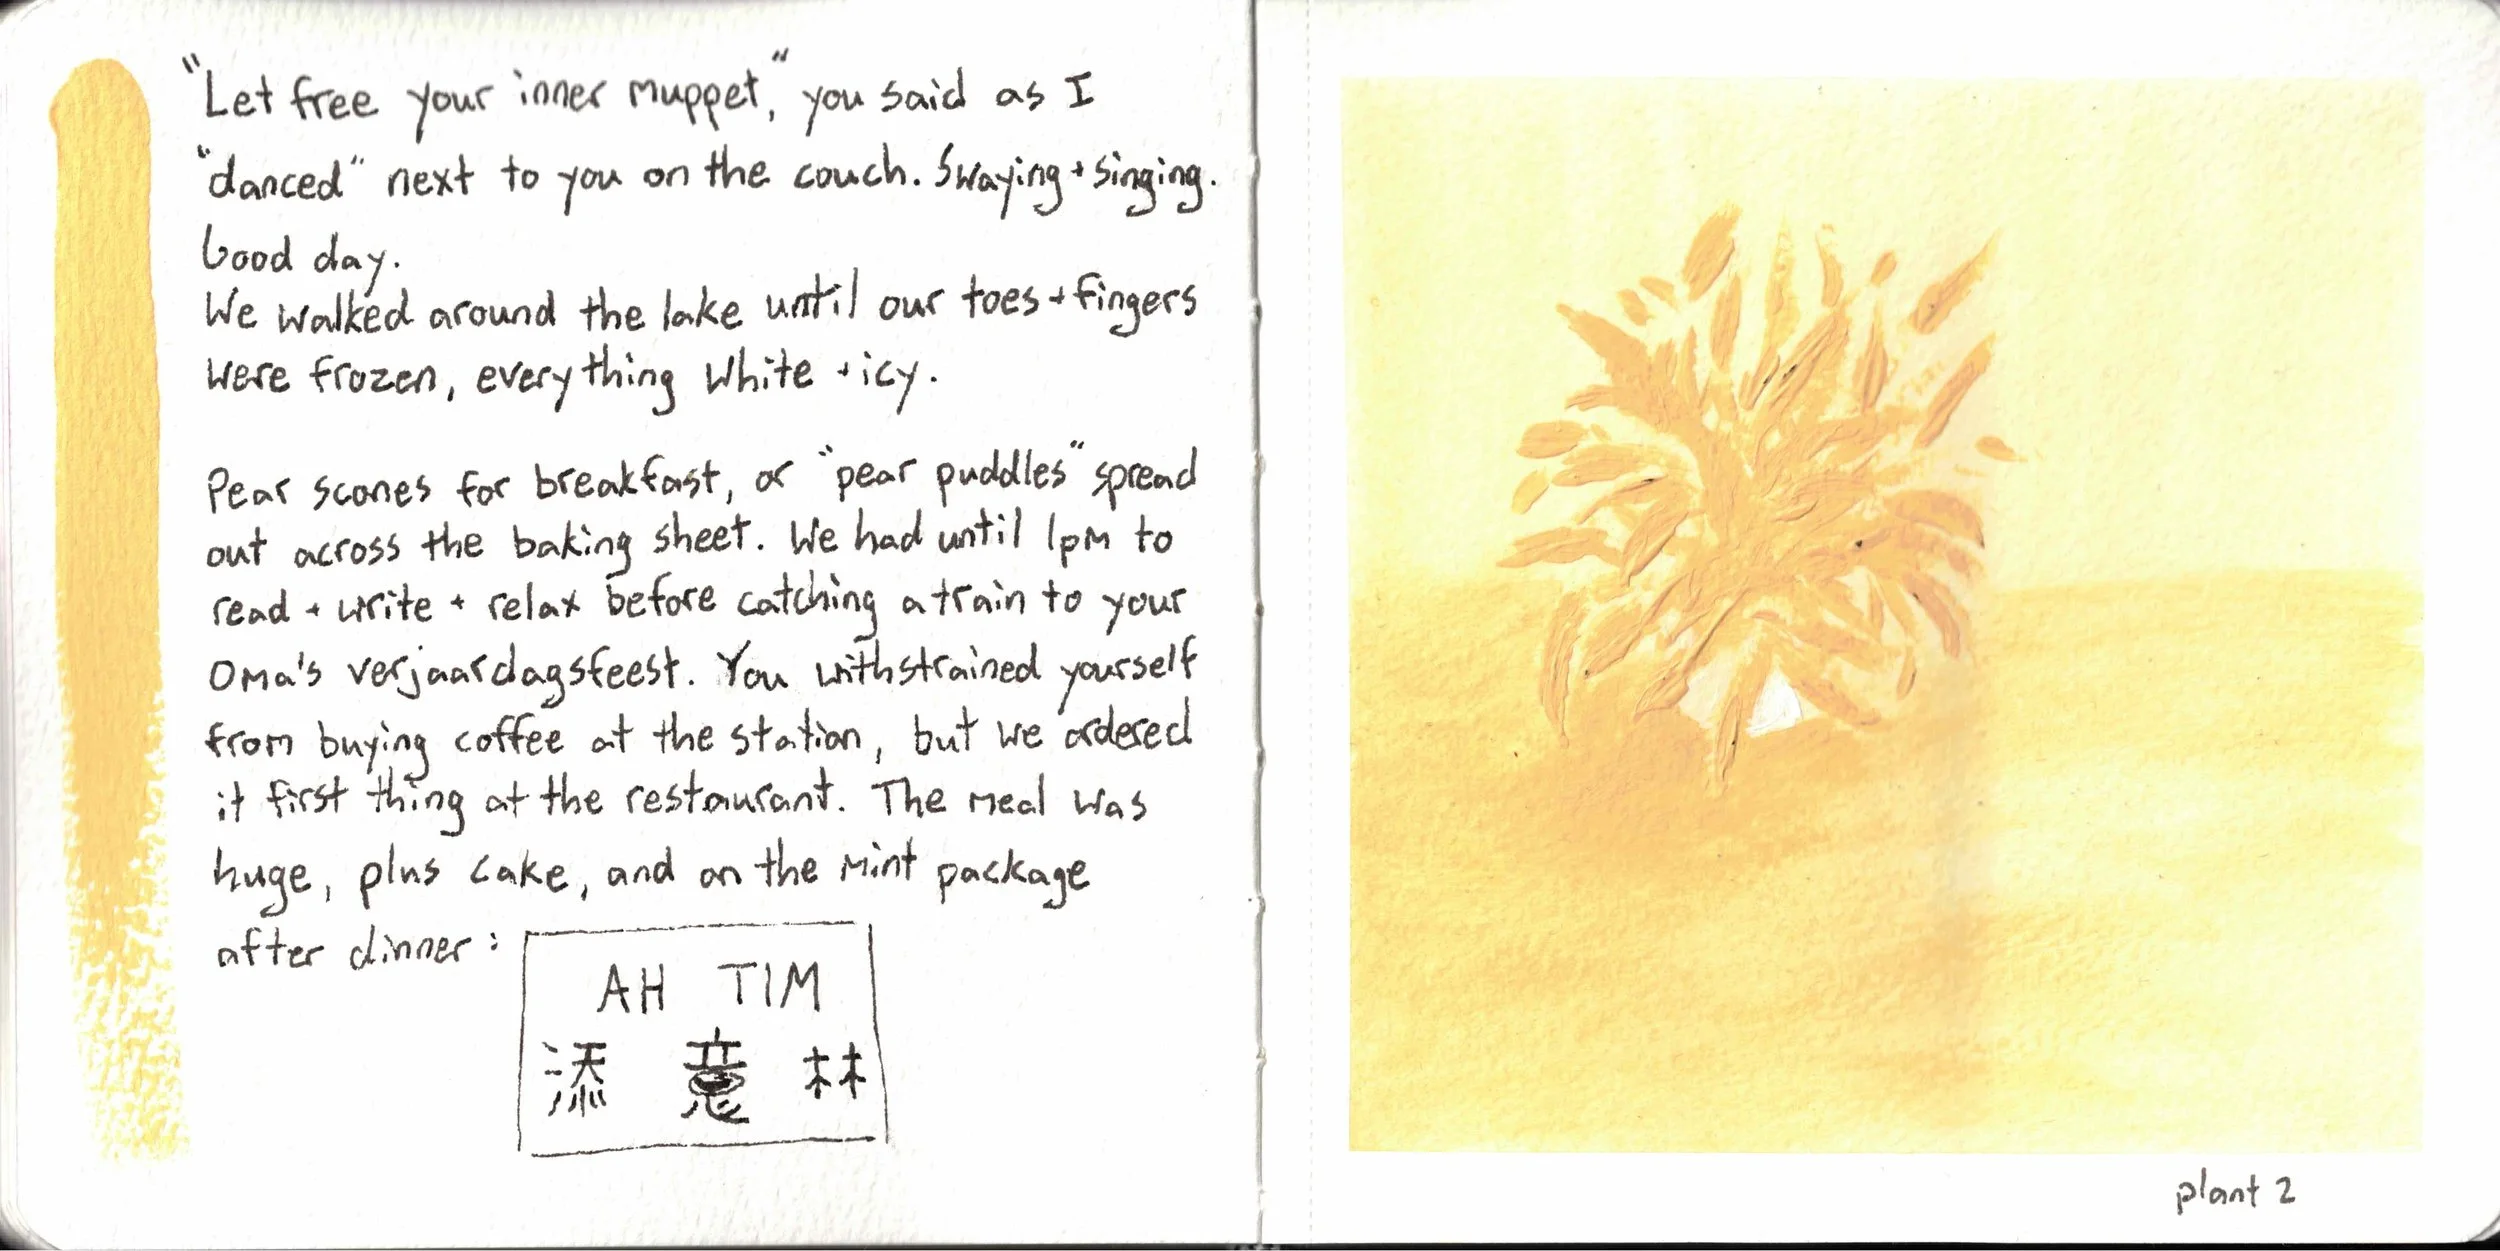 "Let free your inner muppet," you said as I
"danced" next to you on the couch. Swaying + singing.
Good day.
We walked around the lake until our toes + fingers
were frozen, everything white + icy.
Pear scones for breakfast, or "pear puddles" spread
out across the baking sheet. We had until 1pm to
read + write + relax before catching a train to your
Oma's verjaardagsfeest. You withstrained yourself
from buying coffee at the station, but we ordered
it first thing at the restaurant. The meal was
huge, plus cake, and on the mint package
after dinner:
AH TIM
添 意 林
plant 2